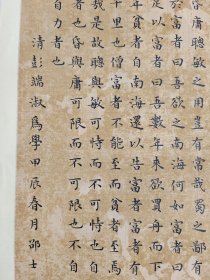 昏庸聰敏之用豈有常哉蜀之鄙有
於富者曰吾欲之南海何如富者曰
足矣富者曰吾數年來欲買舟而下
年貧者自南海還以告富者富者有
千里也僧富者不能至而貧者至焉
哉是故聰與敏可恃而不可恃也自
者也昏與庸可限而不可限也不自
自力者也
清彭端淑爲學甲辰春月邵士